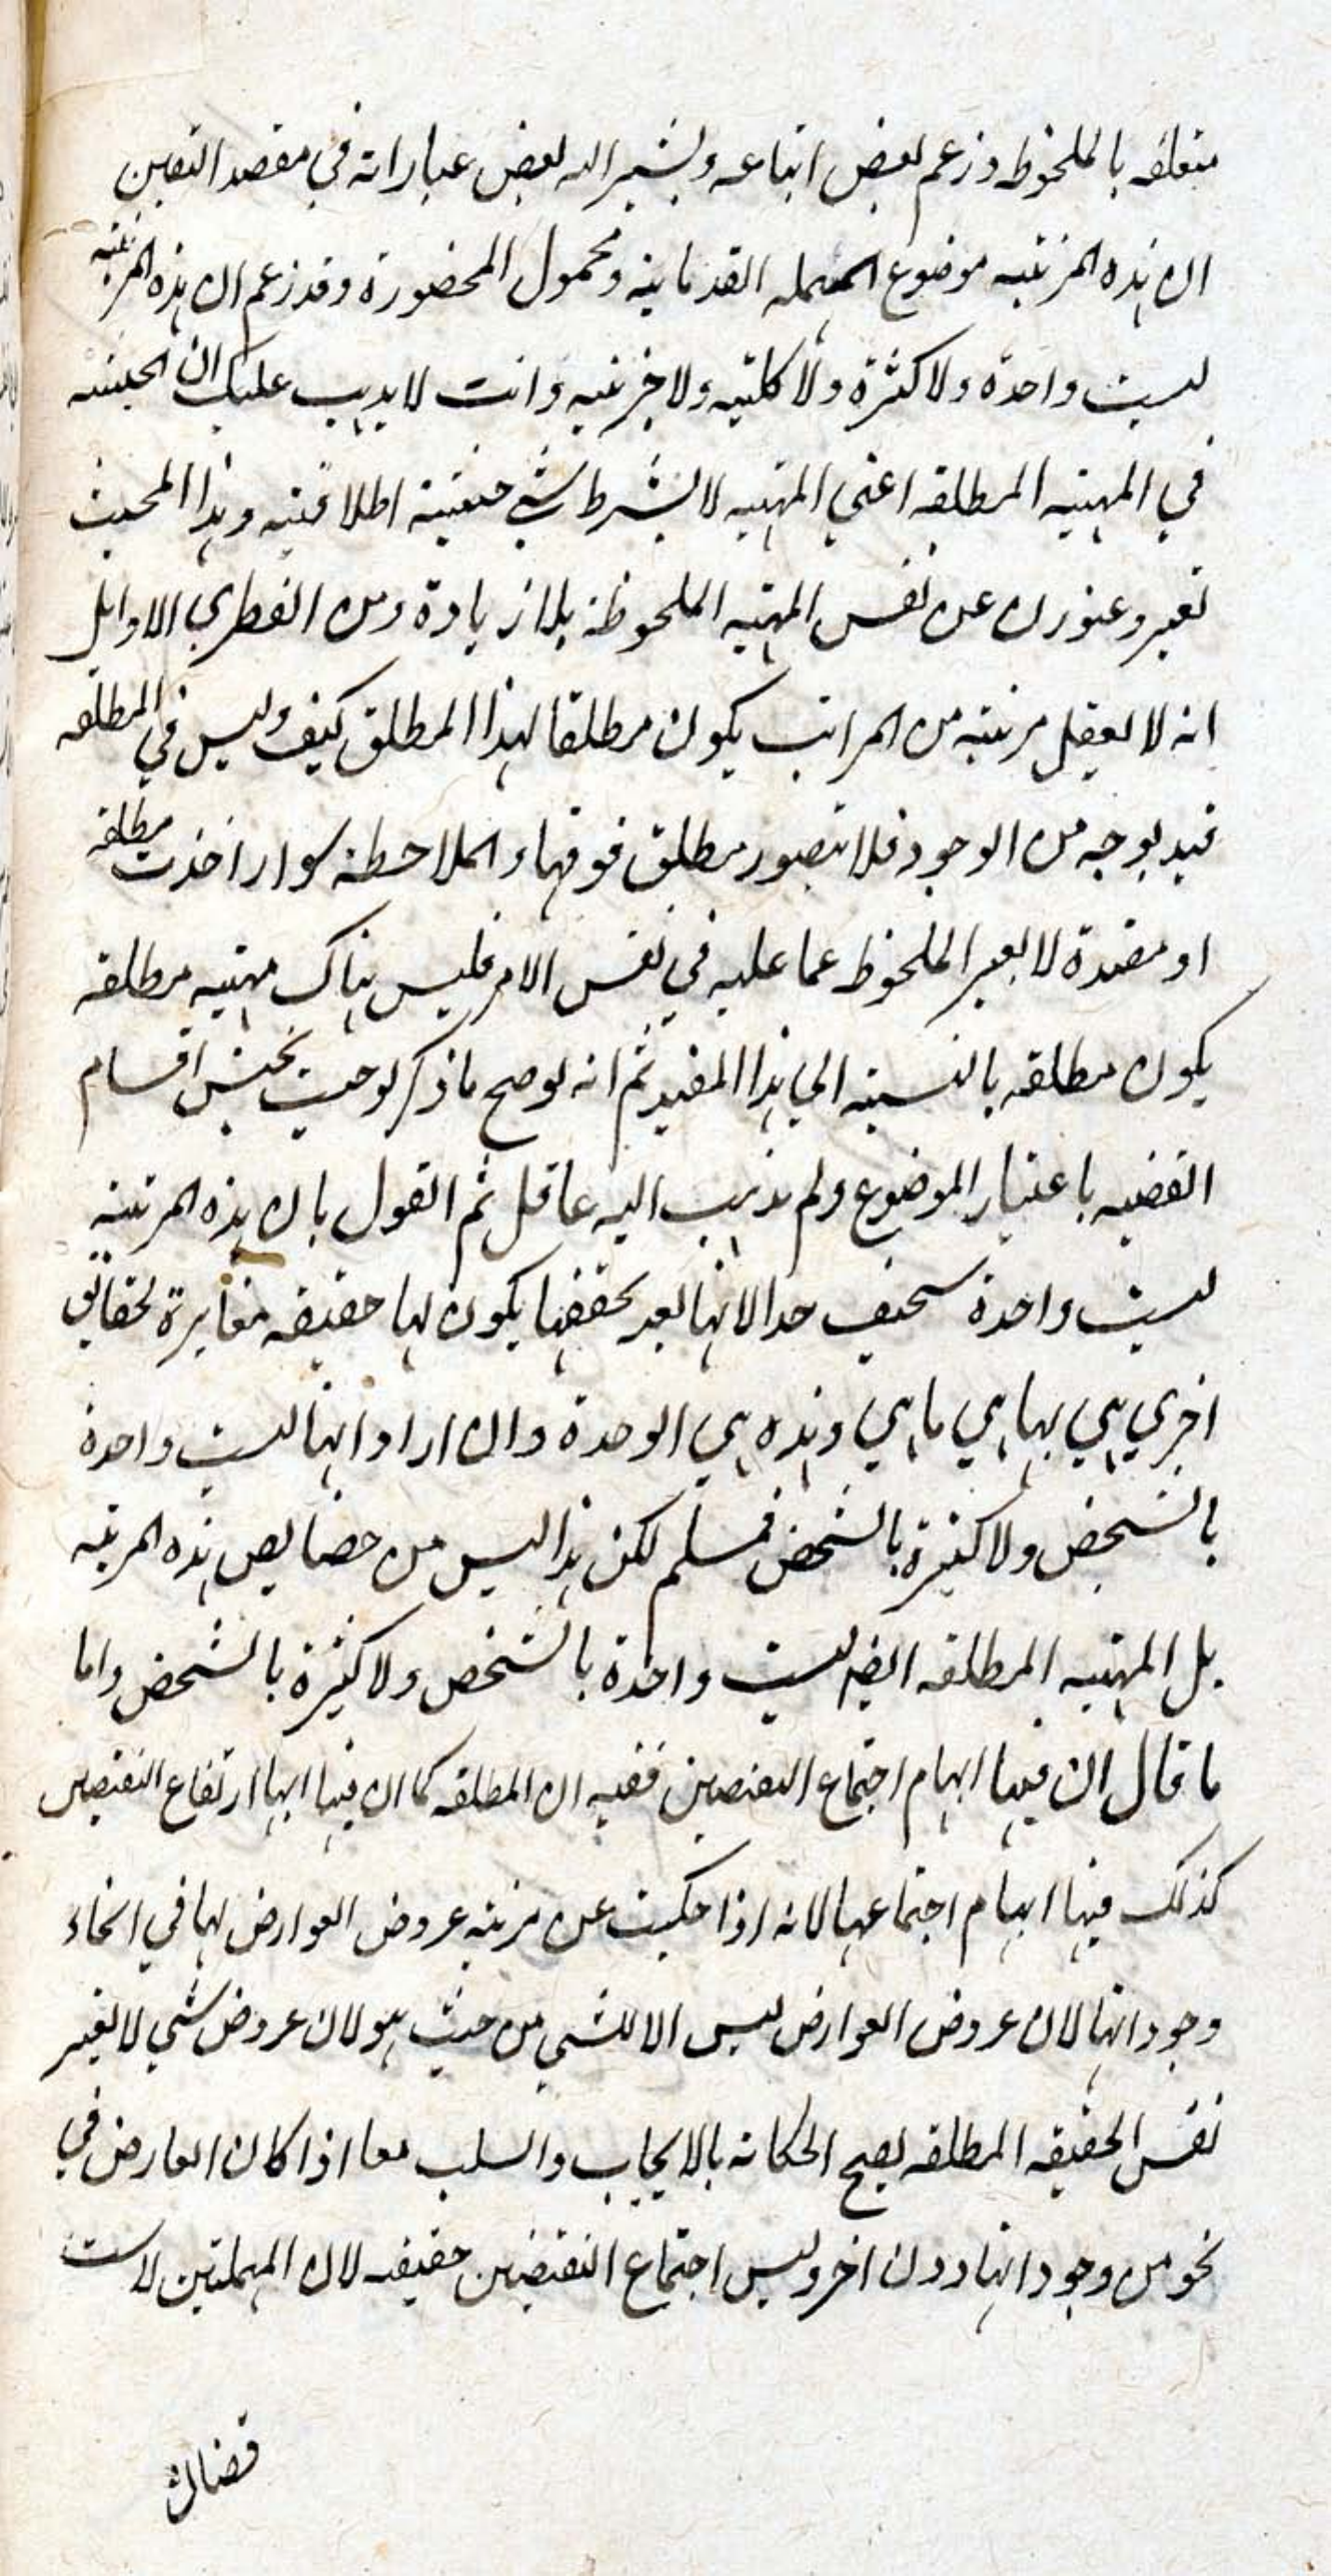 متعلقه بالملحوظ وزعم بعض اتباعه ويشير اليه بعض عباراته في مقصد التعين
ان هذه المرتبه موضوع المهمله القدمائيه ومحمول المحصورة وقد زعم ان هذه المرتبه
ليست واحدة ولا كثرة ولا كلية ولا جزئيه وانت لا يذهب عليك ان الحيثيه
في المهيه المطلقه اعني المهيه لا بشرط شي حيثية اطلاقيه وهذا المحيث
تعبير وعنوان عن نفس المهيه الملحوظة بلا زيادة ومن الفطري الاوايل
انه لا يعقل مرتبة من المراتب يكون مطلقا لهذا المطلق كيف وليس في المطلقه
قيد بوجه من الوجود فلا يتصور مطلق فوقها والملاحظة سواء اخذت مطلقه
او مقيدة لا يغير الملحوظ عما عليه في نفس الامر فليس هناك مهيه مطلقه
يكون مطلقه بالنسبة الي هذا المقيد ثم انه لو صح ما ذكر لوجبت تخميس اقسام
القضيه باعتبار الموضوع ولم يذهب اليه عاقل ثم القول بان هذه المرتبة
ليست واحدة سخيف جدا لانها بعد تحققها يكون لها حقيقه مغايرة لحقايق
اخري هي بها هي ما هي وهذه هي الوحدة وان اراد انها ليست واحدة
بالشخص ولا كثيرة بالشخص فمسلم لكن هذا ليس من خصايص هذه المرتبه
بل المهيه المطلقه ايضا ليست واحدة بالشخص ولا كثيرة بالشخص واما
ما قال ان فيها ابهام اجتماع النقيضين ففيه ان المطلقه كما ان فيها ابها ارتفاع النقيضين
كذلك فيها ابهام اجتماعهما لانه اذا حكيت عن مرتبه عروض العوارض لها في انحاء
وجوداتها لان عروض العوارض ليس الا للشي من حيث هو لان عروض شي لا يغير
نفس الحقيقه المطلقه يصح الحكاية بالايجاب والسلب معا اذا كان العارض في
نحو من وجوداتها دون اخر وليس اجتماع النقيضين حقيقه لان المهملتين لاست